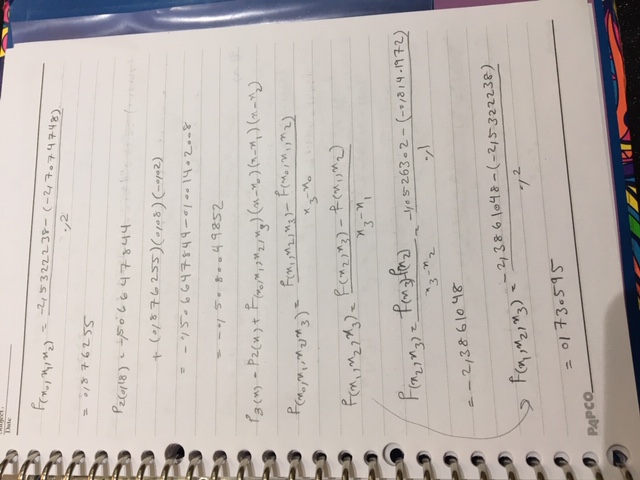 Subject:
Date
f(x₀,x₁,x₂) = (-2,5322238-(-2,7074748)) / 0,2
= 0,876255
P₂(0,18) = -,5066647844
+ (0,876255)(0,08)(-0,02)
= -0,5066647844-0,001402008
= -0,5080049852
P₃(x) = P₂(x) + f(x₀,x₁,x₂,x₃)(x-x₀)(x-x₁)(x-x₂)
f(x₀,x₁,x₂,x₃) = (f(x₁,x₂,x₃) - f(x₀,x₁,x₂)) / (x₃-x₀)
f(x₁,x₂,x₃) = (f(x₂,x₃) - f(x₁,x₂)) / (x₃-x₁)
f(x₂,x₃) = (f(x₃)-f(x₂)) / (x₃-x₂) = (-1,0526302-(-0,81401972)) / 0,1
= -2,3861048
f(x₁,x₂,x₃) = (-2,3861048-(-2,5322238)) / 0,2
= 0,730595
PAPCO